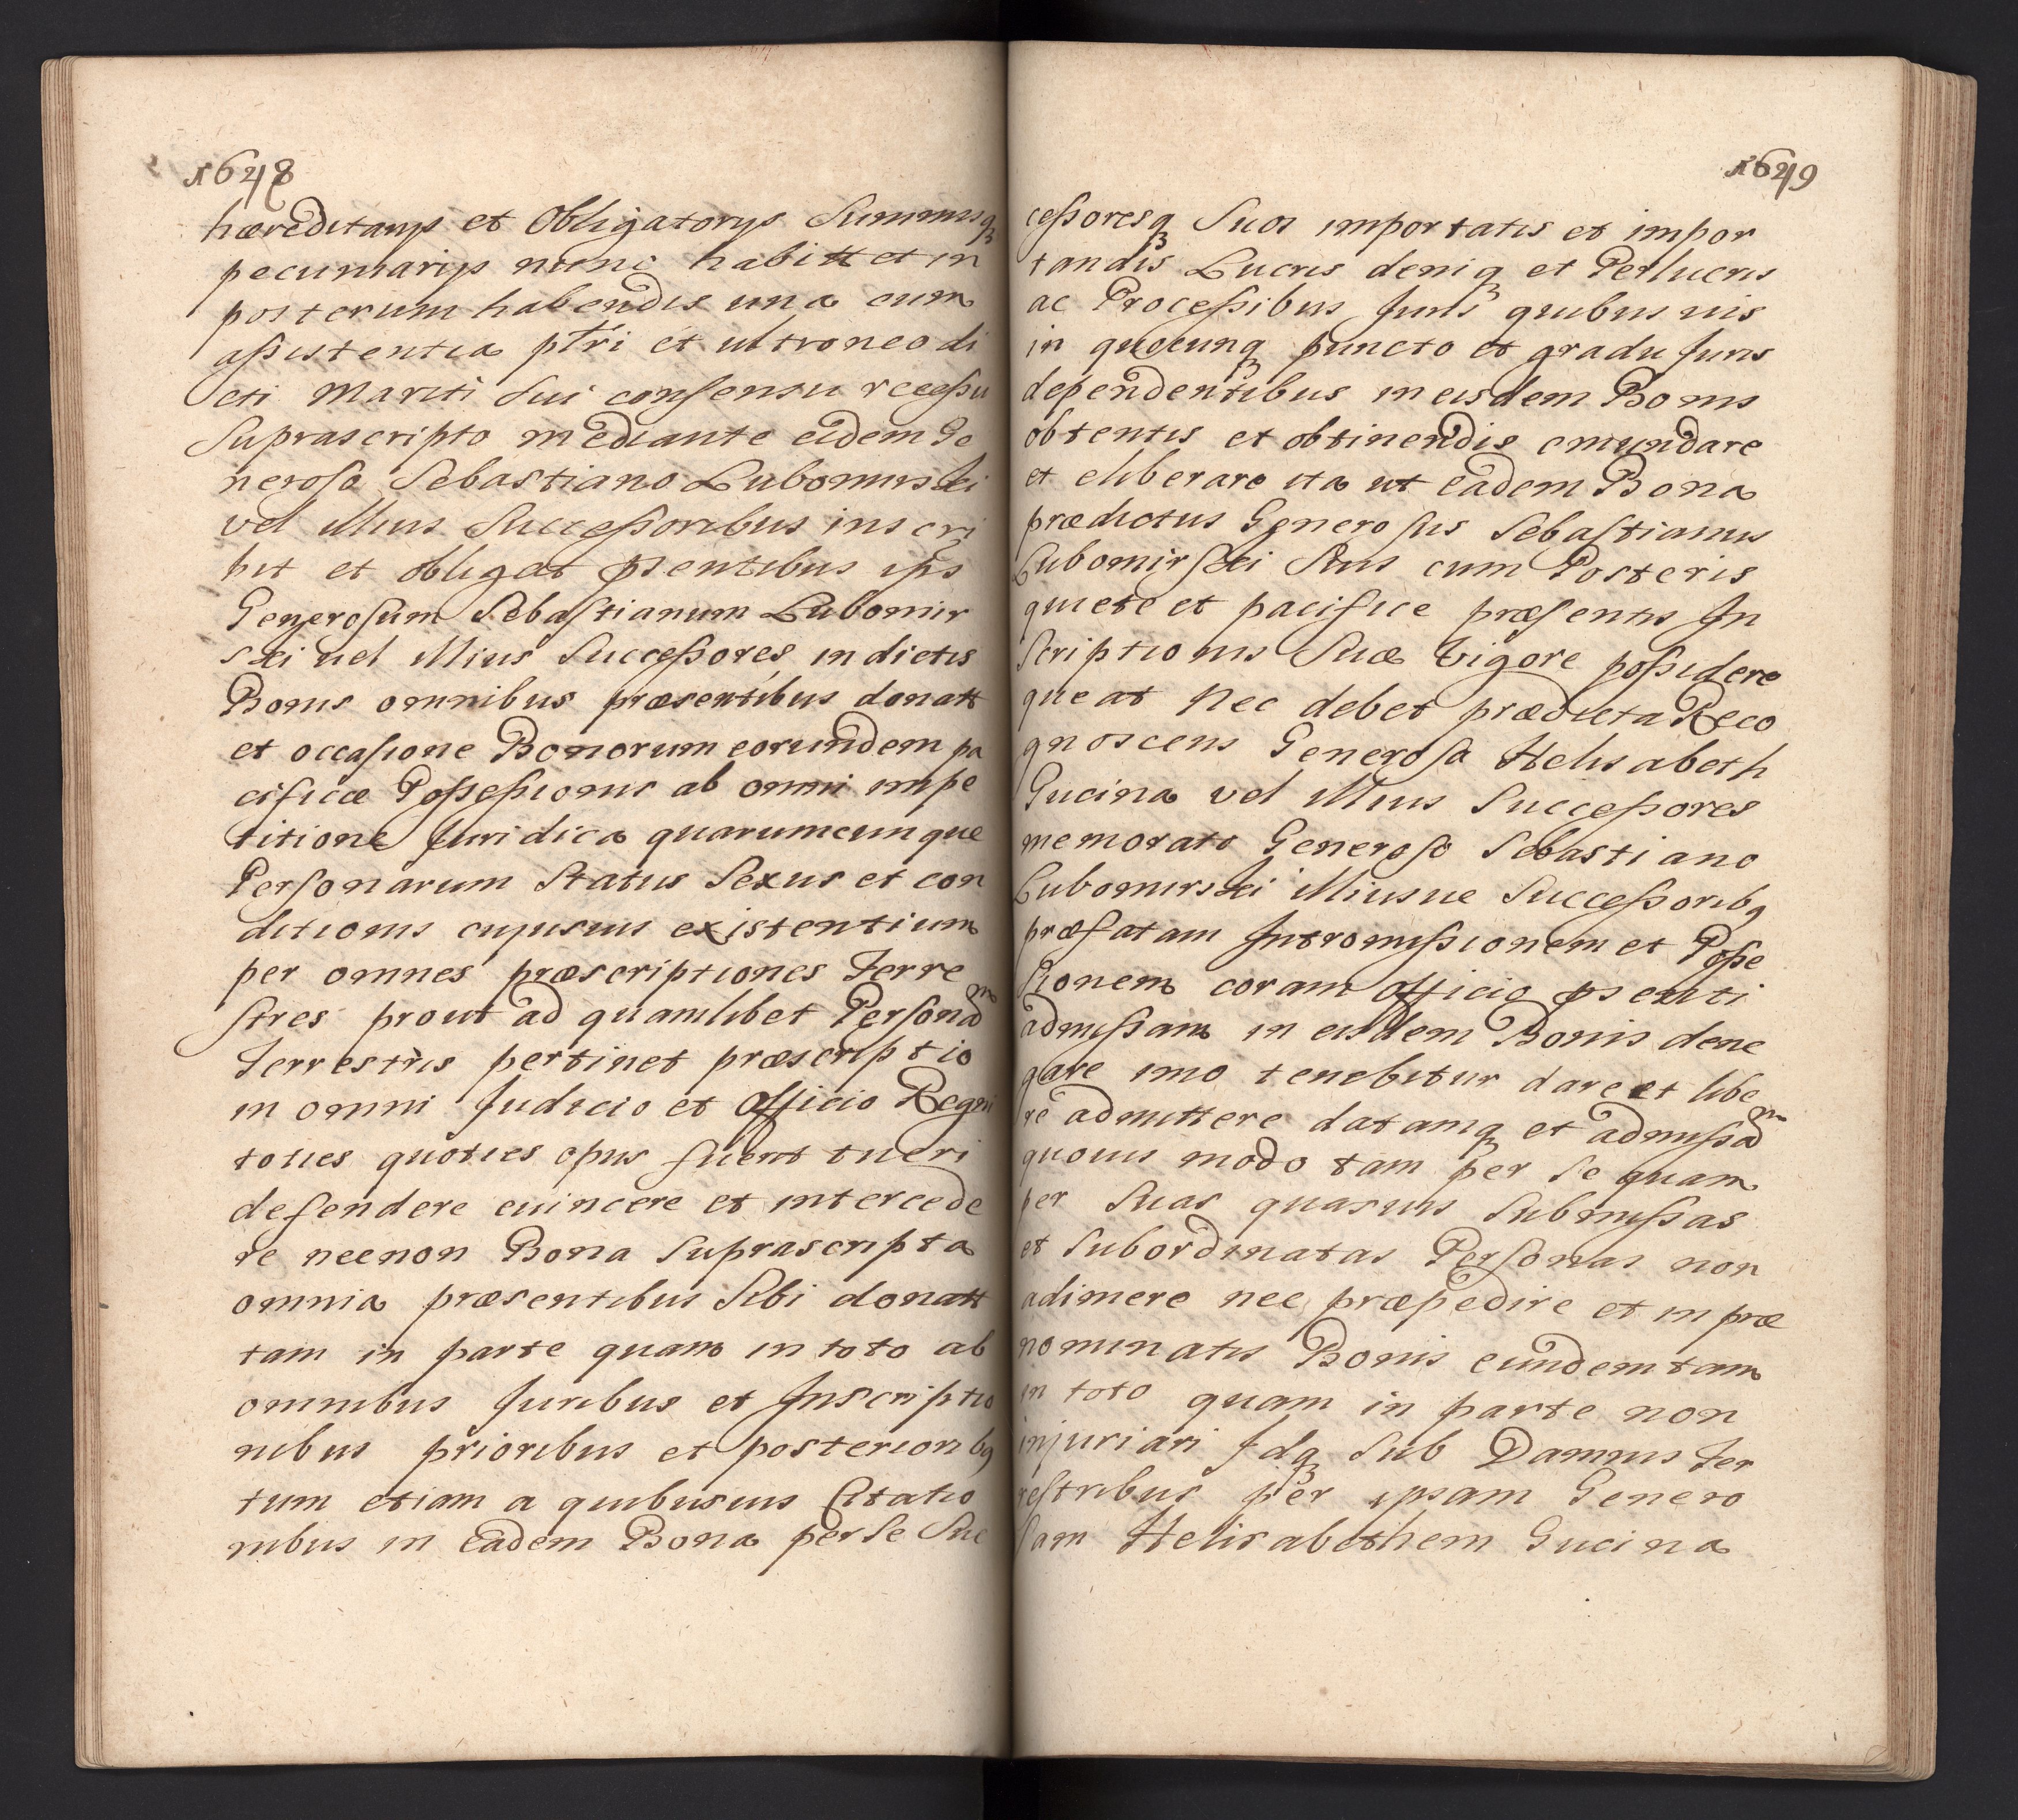 1648
hæreditarijs et Obligatorijs Summisq
pecuniarijs nunc habitt et in
posterum habendis una cum
assistentia ptri et ultroneo di
cti Mariti Sui consensu recessu
Suprascripto mediante eidem Ge
neroso Sebastiano Lubomirski
vel illius Successoribus inscri
bit et obligat psentibus ips
Generosum Sebastianum Lubomir
ski vel illius Successores in dictis
Bonis omnibus præsentibus donatt
et occasione Bonorum eorundem pa
cificæ Possessionis ab omni impe
titione Juridica quarumcunque
Personarum Status Sexus et con
ditionis cujusvis existentium
per omnes præscriptiones Terre
stres prout ad quamlibet Personam
Terrestris pertinet præscriptio
in omni Judicio et Officio Regni
toties quoties opus fuerit tueri
defendere evincere et intercede
re necnon Bona Suprascripta
omnia præsentibus Sibi donatt
tam in parte quam in toto ab
omnibus Juribus et Inscriptio
nibus prioribus et posteriorib9
tum etiam a quibusvis Citatio
nibus in eadem Bona per Se Suc
1649
cessoresq Suos importatis et impor
tandis Lucris deniq et Perlucris
ac Processibus Juris quibusvis
in quocunq puncto et gradu Juris
dependentibus in eisdem Bonis
obtentis et obtinendis emundare
et eliberare ita ut eadem Bona
prædictus Generosus Sebastianus
Lubomirski Suis cum Posteris
quiete et pacifice præsentis In
scriptionis Suæ Vigore possidere
queat Nec debet prædicta Reco
gnoscens Generosa Helisabeth
Gucina vel illius Successores
memorato Generoso Sebastiano
Lubomirski illiusve Successorib9
præfatam Intromissionem et Posse
ssionem coram Officio psenti
admissam in eisdem Bonis dene
gare imo tenebitur dare et libe
re admittere datamq et admissam
quovis modo tam per Se quam
per Suas quasvis Submissas
et Subordinatas Personas non
adimere nec præpedire et in præ
nominatis Bonis eundem tam
in toto quam in parte non
injuriari Idq Sub Damnis Ter
restribus per ipsam Genero
sam Helisabethem Gucina